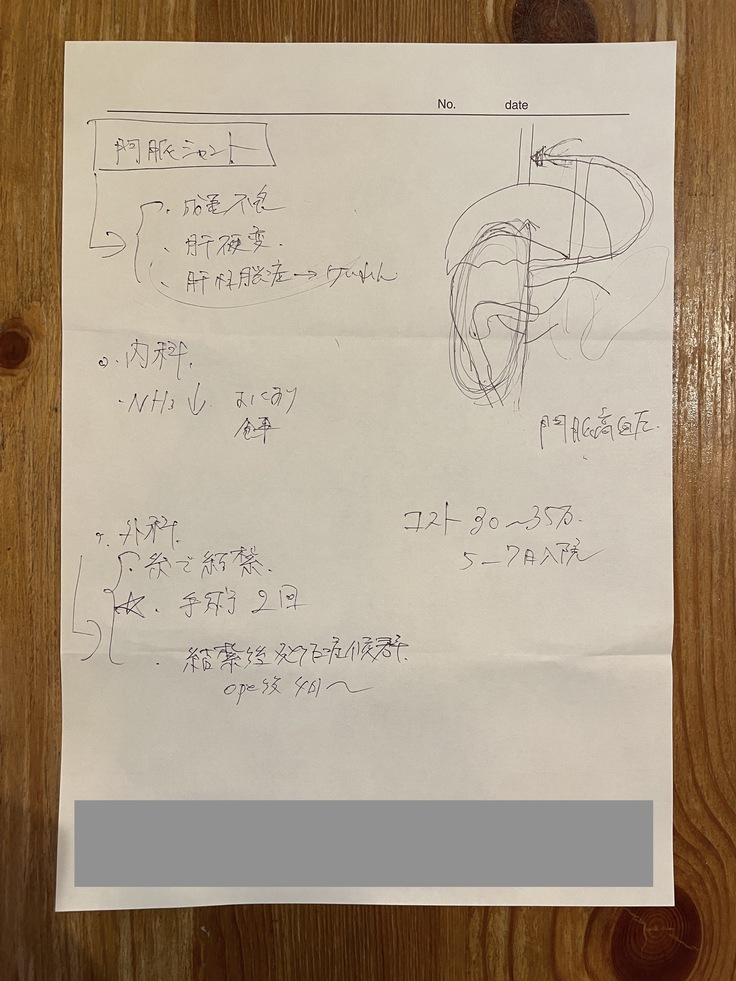 No. date
門脈シャント
・成長不良
・肝硬変
・肝性脳症→けいれん
・内科
・NH₃↓ おにぎり
食事
門脈高血圧
コスト 30〜35万
5–7日入院
・外科
・糸で結紮
☆・手術 2回
・結紮後発作症候群
ope後 4日〜